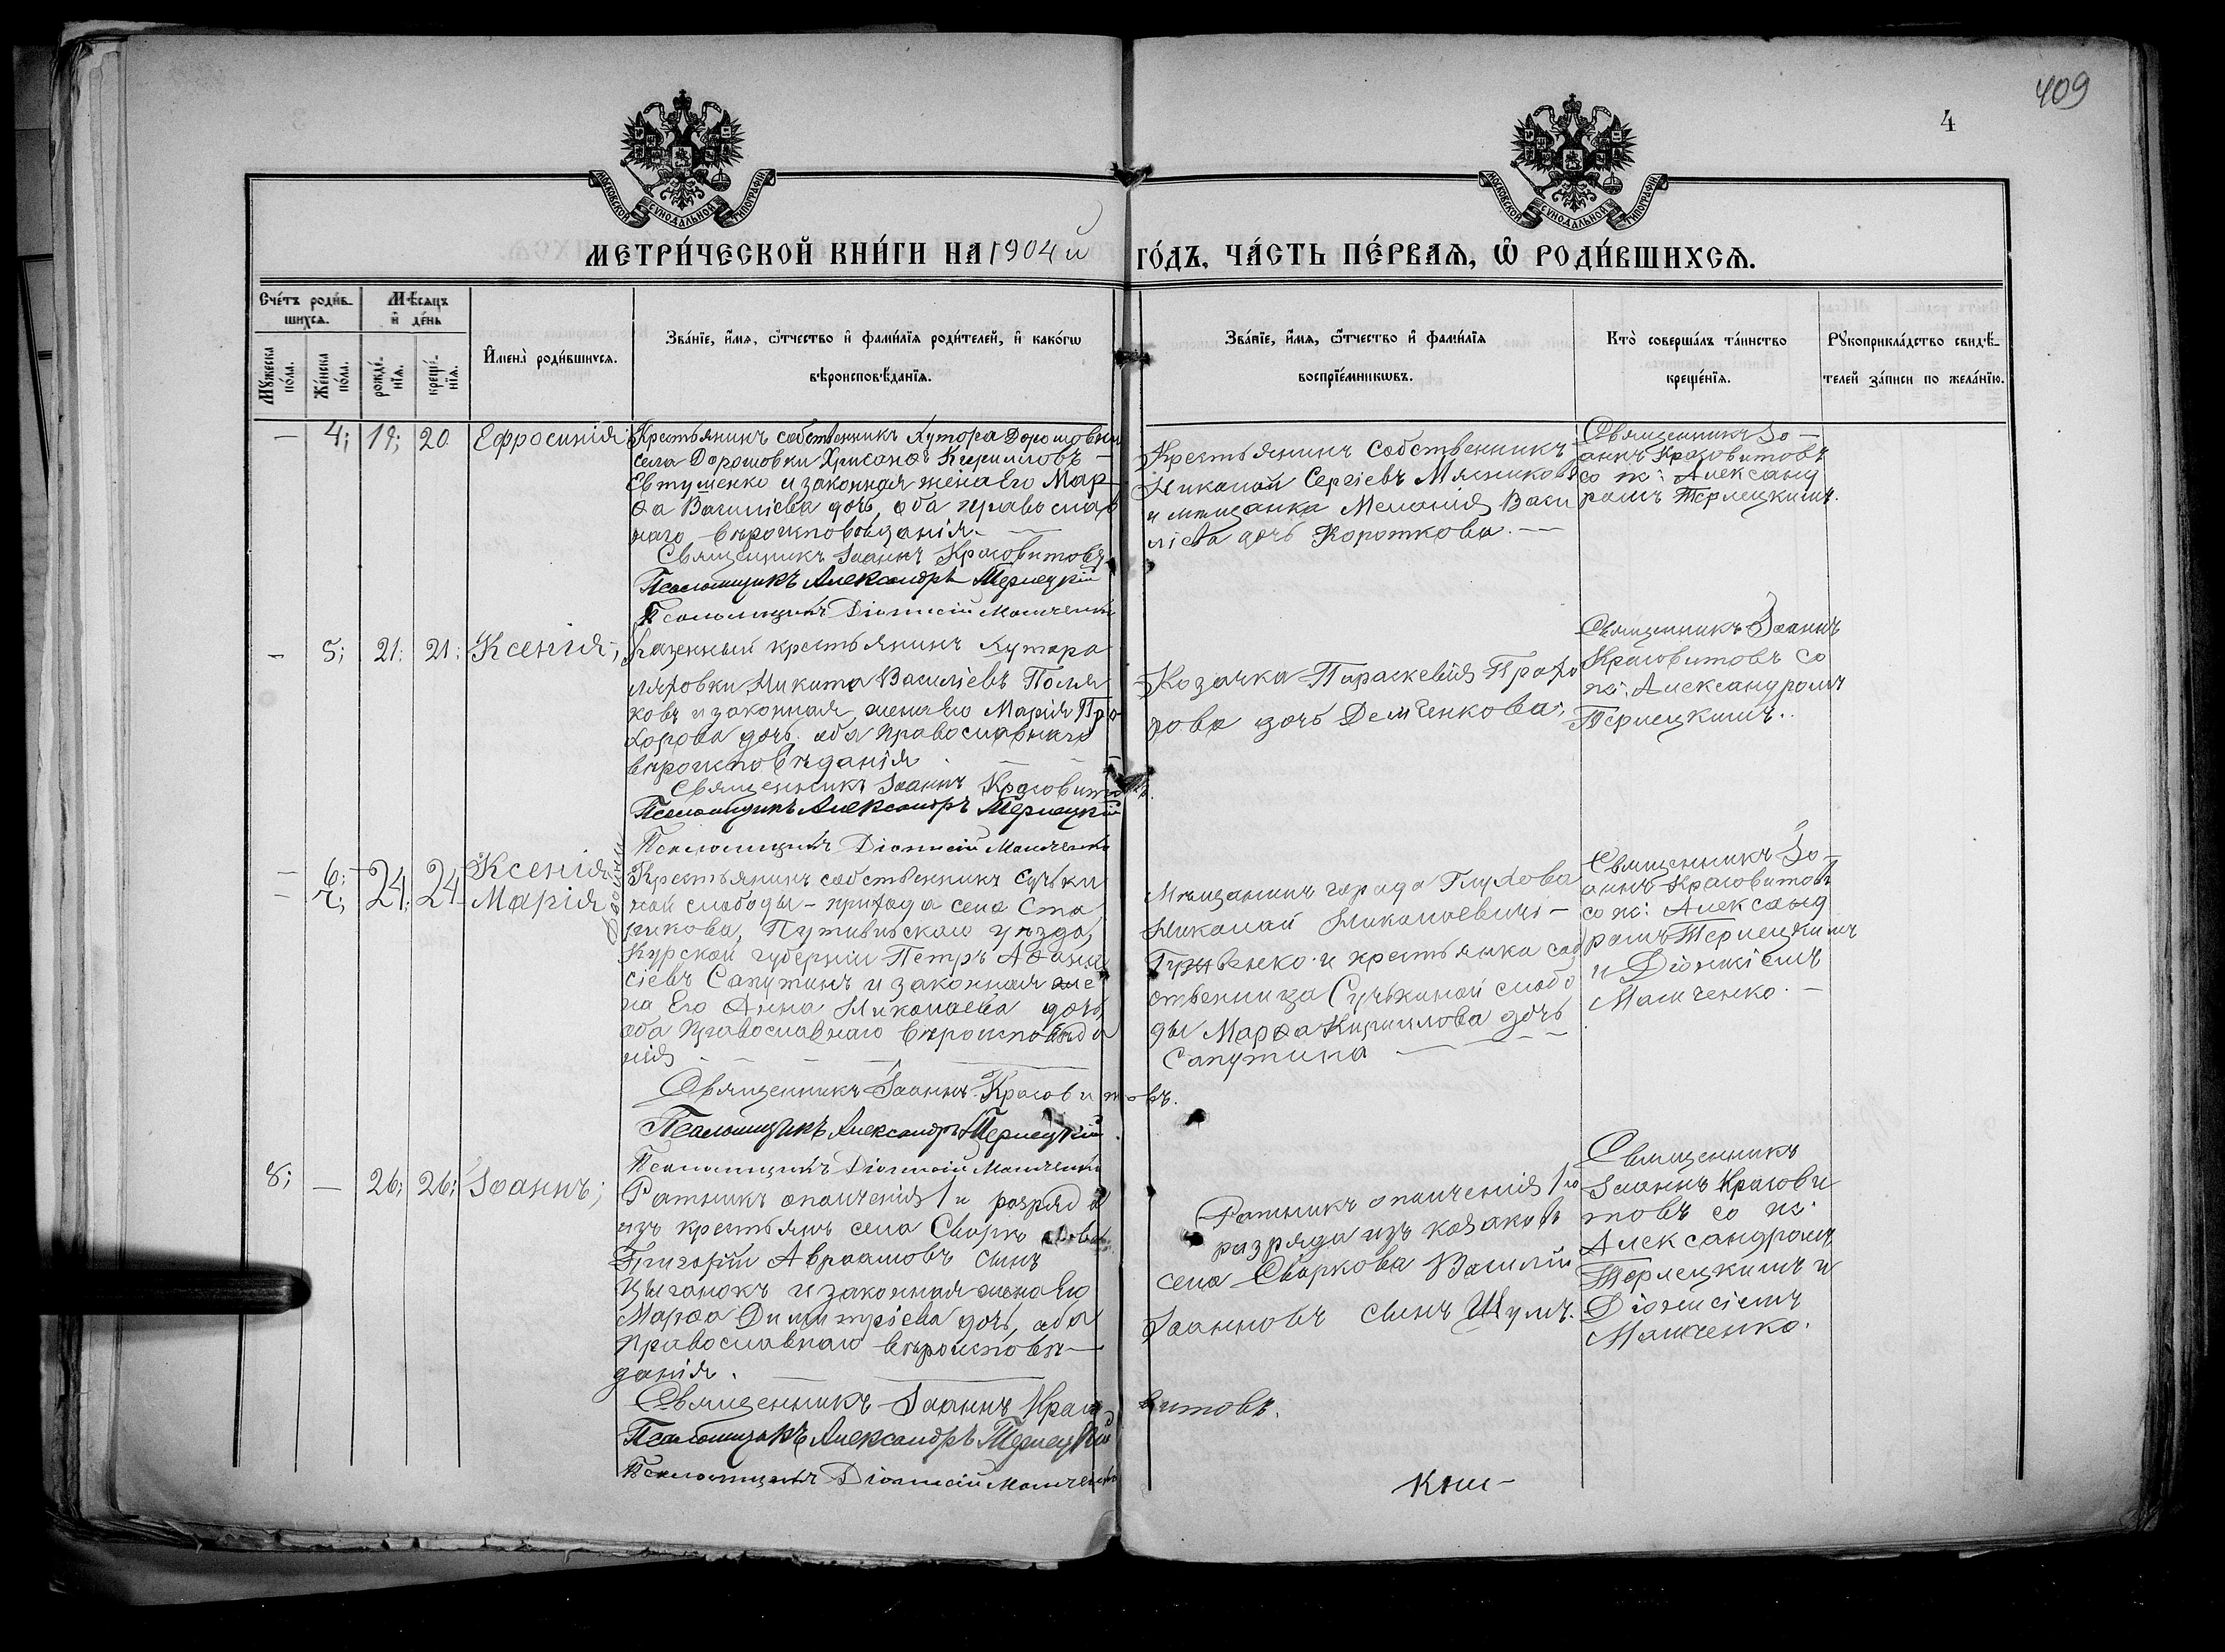 409
4
МОСКОВСКОЙ СѴНОДАЛЬНОЙ ТИПОГРАФІИ
МОСКОВСКОЙ СѴНОДАЛЬНОЙ ТИПОГРАФІИ
МЕТРИ́ЧЕСКОЙ КНИ́ГИ НА 1904 й ГО́ДЪ, ЧА́СТЬ ПЕ́РВАѦ, Ѡ РОДИ́ВШИХСѦ.
Сче́тъ роди́в-
шихсѧ.
Мѣ́сѧцъ
и҆ де́нь
Мꙋ́жеска
по́ла.
Же́нска
по́ла.
рожде́-
нїѧ.
креще́-
нїѧ.
И҆мена̀ роди́вшихсѧ.
Зва́нїе, и҆́мѧ, ѻ҆́тчество и҆ фами́лїѧ роди́телей, и҆ како́гѡ
вѣроисповѣ́данїѧ.
Зва́нїе, и҆́мѧ, ѻ҆́тчество и҆ фами́лїѧ
воспрїе́мникѡвъ.
Кто̀ соверша́лъ та́инство
креще́нїѧ.
Рꙋкоприкла́дство свидѣ́-
телей за́писи по жела́нїю.
— 4; 19; 20 Ефросинія
Крестьянинъ собственникъ хутора Дорошовки
села Дорошовки Кирилловъ
Евтушенко и законная жена его Мар-
ѳа Василіева дочь, оба православ
наго вѣроисповѣданія. —
Священникъ Іоаннъ Красовитовъ
Псаломщикъ Александръ Терлецкій
Псаломщикъ Діонисій Мамченко
Крестьянинъ собственникъ
Николай Сергіевъ Мясниковъ
и мѣщанка Меланія Васи
ліева дочь Короткова. —
Священникъ Іо-
аннъ Красовитовъ
со пс: Александ
ромъ Терлецкимъ.
— 5; 21; 21; Ксенія;
Казенный крестьянинъ хутора
Никита Василіевъ Поля
ковъ и законная жена его Марія Про
хорова дочь оба православнаго
вѣроисповѣданія
Священникъ Іоаннъ Красовитовъ.
Псаломщикъ Александръ Терлецкій
Псаломщикъ Діонисій Мамченко
Козачка Параскевія Прохо
рова дочь Демченкова;
Священникъ Іоаннъ
Красовитовъ со
пс: Александромъ
Терлецкимъ.
— 6; Ксенія
— 7; 24; 24 Марія
Крестьянинъ собственникъ Сучки
ной слободы – прихода села Ста
рикова, Путивльскаго уѣзда,
Курской губерніи Петръ Аѳана
сіевъ Сапутинъ и законная же
на Его Анна Николаева дочь,
оба православнаго вѣроисповѣда
нія
Священникъ Іоаннъ Красовитовъ.
Псаломщикъ Александръ Терлецкій
Псаломщикъ Діонисій Мамченко
Мѣщанинъ города Глухова
Николай Николаевичъ –
и крестьянка соб
ственница Сучкиной слобо
ды Марѳа Кириллова дочь
Сапутина
Священникъ Іо-
аннъ Красовитовъ
со пс: Александ
ромъ Терлецкимъ
и Діонисіемъ
Мамченко. —
8; — 26; 26; Іоаннъ;
Ратникъ ополченія 1 и разряда
изъ крестьянъ села
Григорій Авраамовъ сынъ
Цыганокъ и законная жена Его
Марѳа Димитріева дочь, оба
православнаго вѣроисповѣ-
данія.
Священникъ Іоаннъ Красовитовъ.
Псаломщикъ Александръ Терлецкій
Псаломщикъ Діонисій Мамченко
Ратникъ ополченія 1 го
разряда изъ козаковъ
села Сваркова Василій
Іоанновъ сынъ Шумъ.
Священникъ
Іоаннъ Красови
товъ со пс.
Александромъ
Терлецкимъ и
Діонисіемъ
Мамченко.